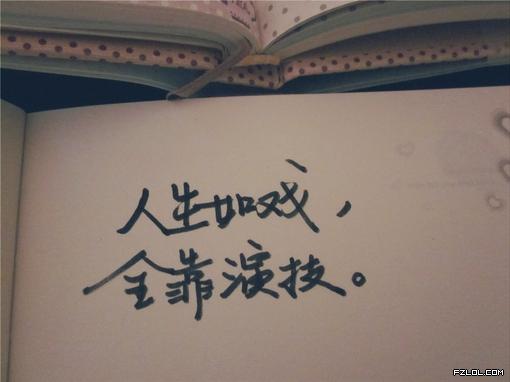 人生如戏，
全靠演技。
FZLOL.COM